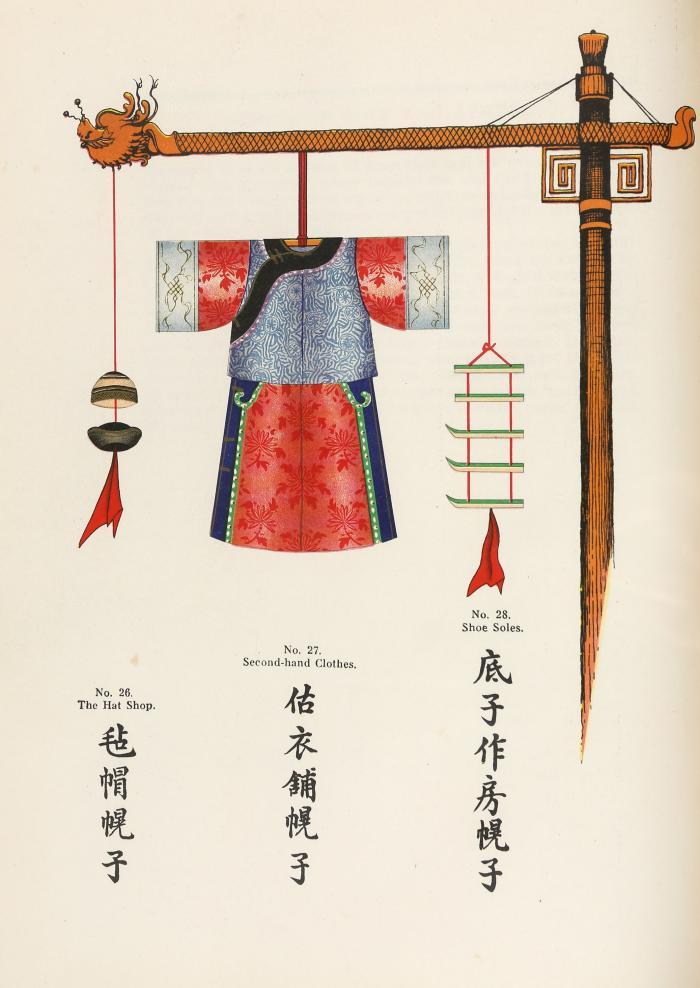 No. 28.
Shoe Soles.
底子作房幌子
No. 27.
Second-hand Clothes.
估衣舖幌子
No. 26.
The Hat Shop.
毡帽幌子